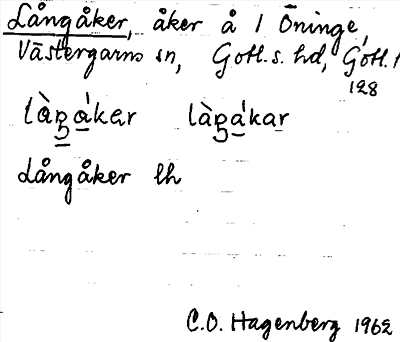 Långåker, åker å 1 Öninge,
Västergarns sn, Gotl. s. hd, Gotl.
128
làŋákar làŋákar
Långåker lh
C.O. Hagenberg 1962